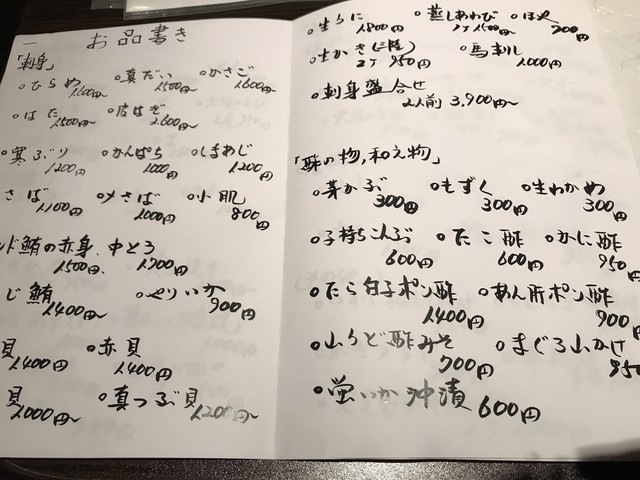 お品書き
「刺身」
○ひらめ 1,600円 ○真だい 1500円~ ○かさご 1600円~
○はた 1500円~ ○皮はぎ 2,600円~
○寒ぶり 1200円 ○かんぱち 1000円 ○しまあじ 1,200円
さば 1,100円 ○〆さば 1000円 ○小肌 800円
ド鮪の赤身 1500円、中とろ 1,700円
じ鮪 1400円~ ○やりいか 900円
貝 1400円 ○赤貝 1400円
貝 1000円~ ○真つぶ貝 1200円~
○生うに 1800円 ○蒸しあわび 1500円~ ○ほや 700円
○生かき(三陸) 2ケ 950円 ○馬刺し 1000円
○刺身盛合せ 2人前 3,900円~
「酢の物,和え物」
○芽かぶ 300円 ○もずく 300円 ○生わかめ 300円
○子持ちこんぶ 600円 ○たこ酢 600円 ○かに酢 950
○たら白子ポン酢 1400円 ○あん肝ポン酢 900円
○山うど酢みそ 700円 ○まぐろ山かけ 950
○蛍いか沖漬 600円